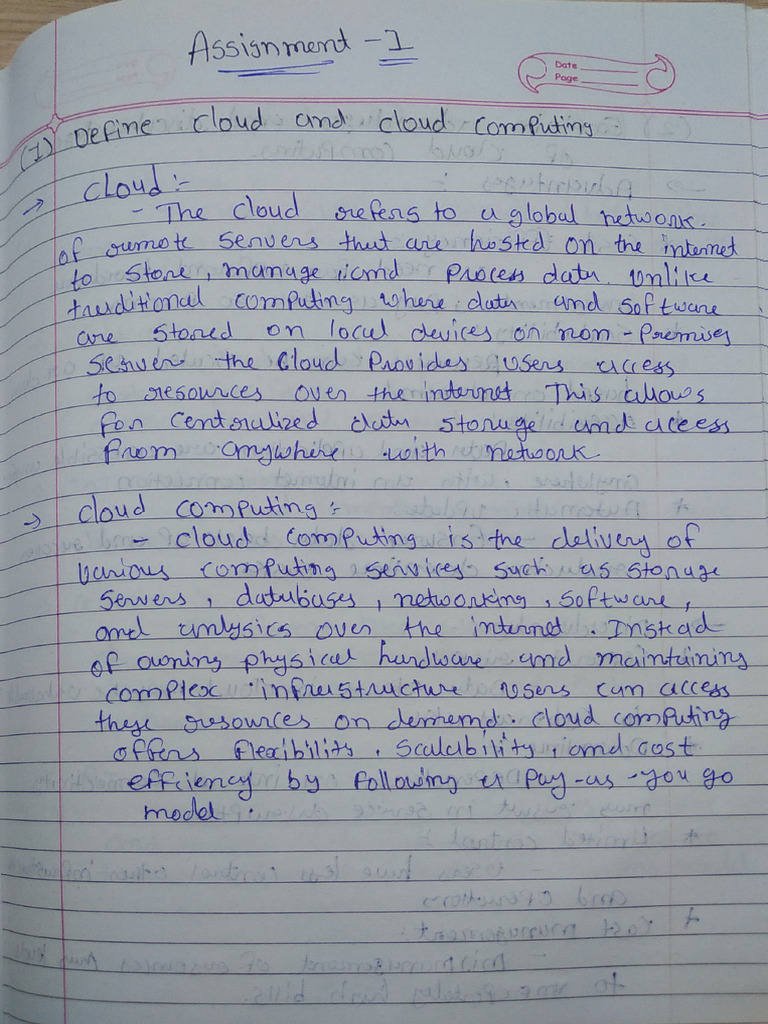 Assignment - 1
Date
Page
(1) Define cloud and cloud computing
→ cloud :-
- The cloud refers to a global network.
of remote servers that are hosted on the internet
to store, manage and Process data. Unlike
traditional computing where data and software
are stored on local devices or non-Premises
server the cloud Provides users access
to resources over the internet This allows
for centralized data storage and access
from anywhere with network
→ cloud computing :-
- cloud computing is the delivery of
various computing services such as storage
servers, databases, networking, software,
and anlysics over the internet. Instead
of owning physical hardware and maintaining
complex infrastructure users can access
these resources on demand. cloud computing
offers flexibility, scalability, and cost
efficiency by following a Pay-as-you go
model.